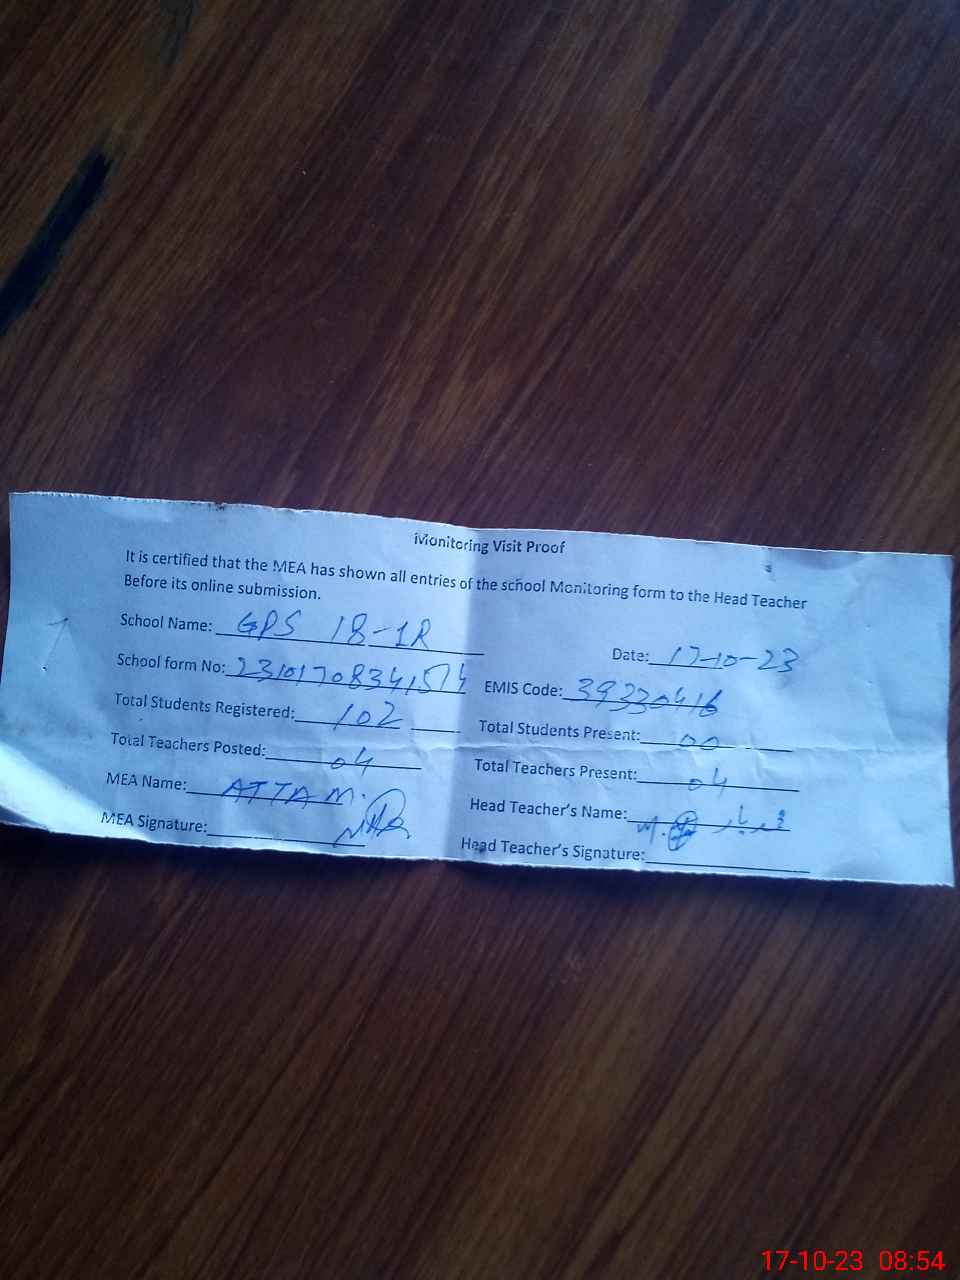 Monitoring Visit Proof
It is certified that the MEA has shown all entries of the school Monitoring form to the Head Teacher
Before its online submission.
School Name: GPS 18-1R
Date: 17-10-23
School form No: 23101708341574
EMIS Code: 39330416
Total Students Registered: 102
Total Students Present: 00
Total Teachers Posted: 04
Total Teachers Present: 04
MEA Name: ATTA M.
Head Teacher's Name:
MEA Signature:
Head Teacher's Signature:
17-10-23 08:54